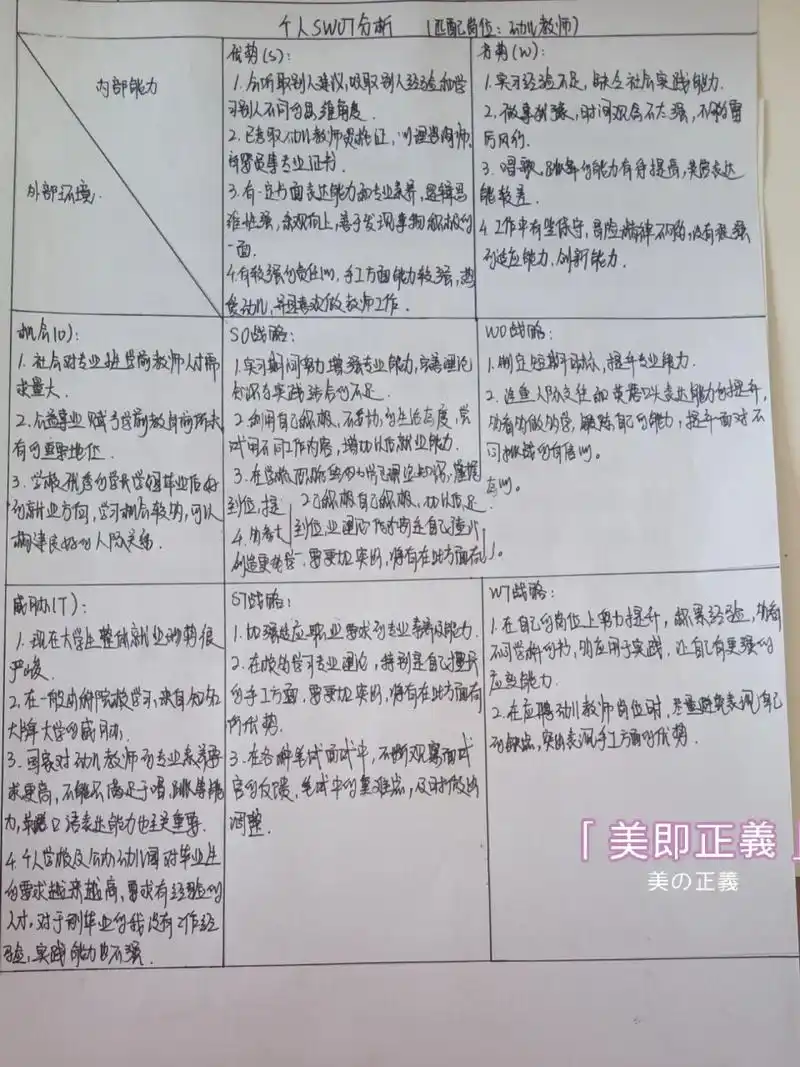 个人SWOT分析 (匹配岗位：幼儿教师)
内部能力
外部环境
优势(S)：
1. 会听取别人建议,吸取别人经验和学
习别人不同的思维角度.
2. 已考取幼儿教师资格证,心理咨询师,
育婴员等专业证书.
3. 有一定书面表达能力和专业素养,逻辑思
维较强,乐观向上,善于发现事物积极的
一面.
4. 有较强的责任心,手工方面能力较强,热
爱幼儿,并且喜欢做教师工作.
劣势(W)：
1. 实习经验不足,缺乏社会实践能力.
2. 做事拖拉,时间观念不太强,不够雷
厉风行.
3. 唱歌,跳舞的能力有待提高,英语表达
能较差.
4. 工作中有些保守,冒险精神不够,没有很强
的适应能力,创新能力.
机会(O)：
1. 社会对专业班学前教师人才需
求量大.
2. 公益事业赋予学前教育前所未
有的重要地位.
3. 学校优秀的学长学姐毕业后好
的就业方向,学习机会较多,可以
构建良好的人际关系.
SO战略：
1. 实习期间努力增强专业能力,完善理论
知识与实践结合的不足.
2. 利用自己积极,不妥协的生活态度,尝
试用不同工作内容,增加以后就业能力.
3. 在学校
到位,提
4. 多考
创造更
WO战略：
1. 制定短期目标,提升专业能力.
2. 注重人际交往和英语口头表达能力的提升,
多看多做多学,锻炼自己的能力,提升面对不
同挑战的自信心.
威胁(T)：
1. 现在大学生整体就业形势很
严峻.
2. 在一般本科院校学习,来自知名
大牌大学的威胁.
3. 国家对幼儿教师的专业素养要
求更高,不能只满足于唱,跳等能
力,英语口语表达能力也至关重要.
4. 个人学校及公办幼儿园对毕业生
的要求越来越高,要求有经验的
人才,对于刚毕业的我没有工作经
验,实践能力也不强.
ST战略：
1. 加强适应职业要求的专业素养及能力.
2. 在校多学习专业理论,特别是自己擅长
的手工方面,需要加实践,将存在此方面有
所优势.
3. 在各种笔试面试中,不断观察面试
官的反馈,笔试中的重难点,及时做出
调整.
WT战略：
1. 在自己的岗位上努力提升,积累经验,多看
不同学科的书,多应用于实践,让自己有更强的
应变能力.
2. 在应聘幼儿教师岗位时,尽量避免表现自己
的缺点,突出表现手工方面的优势.
「美即正義」
美の正義